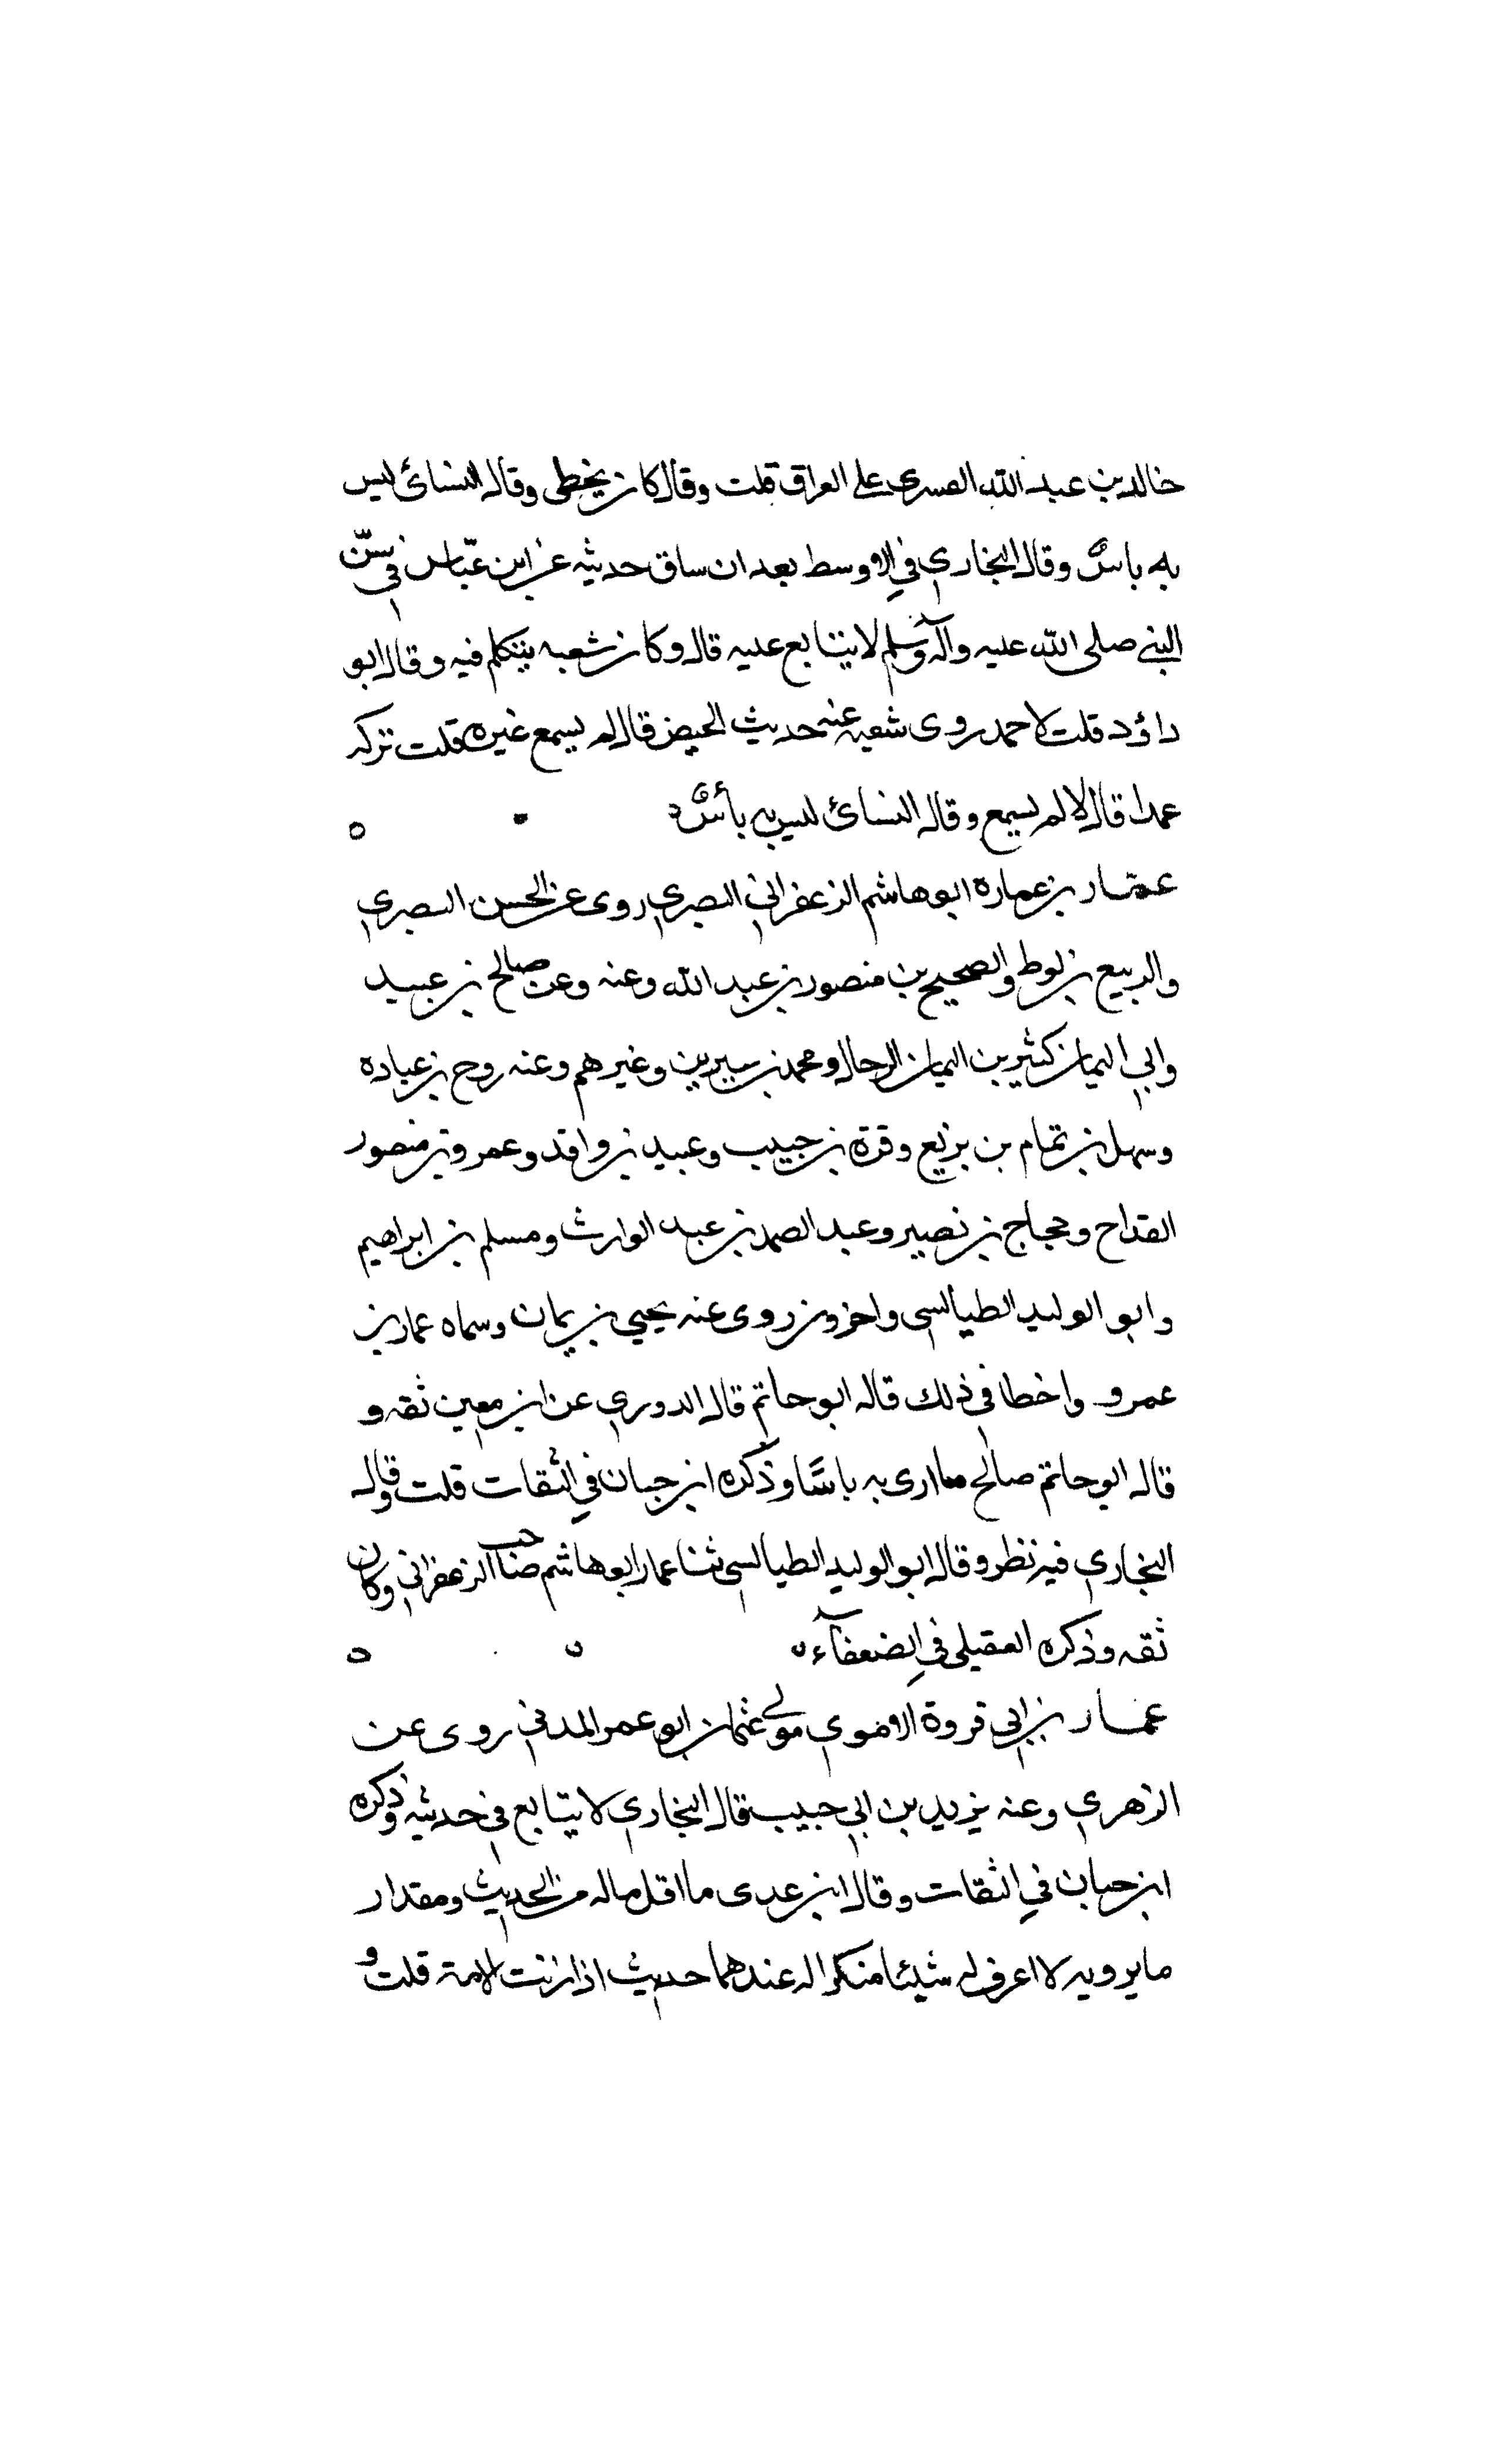 خالد بن عبد الله القسري على العراق قلت وقال كان يخطى وقال النسائى ليس
به باس وقال البخاري في الاوسط بعد ان ساق حديثه عن ابن عباس في سن
النبي صلى الله عليه وآله وسلم لا يتابع عليه قال وكان شعبه يتكلم فيه وقال ابو
داؤد قلت لاحمد روى شعبه عنه حديث الحيض قال لم يسمع غيره قلت تركه
عمدا قال لا لم يسمع وقال النسائ ليس به بأس
عمار بن عماره ابو هاشم الزعفراني البصري روى عن الحسن البصري
والربيع بن لوط والصحيح بن منصور بن عبد الله وعنه وعن صالح بن عبيد
وابي اليمان كثير بن اليمان الرحال ومحمد بن سيرين وغيرهم وعنه روح بن عباده
وسهل بن تمام بن بزيع وقرة بن حبيب وعبيد بن واقد وعمرو بن منصور
القداح وحجاج بن نصير وعبد الصمد بن عبد الوارث ومسلم بن ابراهيم
وابو الوليد الطيالسى واخرون روى عنه يحيي بن يمان وسماه عمار بن
عمرو واخطا في ذلك قاله ابو حاتم قال الدوري عن ابن معين ثقه و
قال ابو حاتم صالح ما ارى به باسا وذكره ابن حبان في الثقات قلت وقال
البخاري فيه نظر وقال ابو الوليد الطيالسى ثنا عمار ابو هاشم صاحب الزعفراني وكان
ثقه وذكره العقيلى في الضعفآء
عمار بن ابي فروة الاموي مولى عثمان ابو عمر المدني روى عن
الزهري وعنه يزيد بن ابي حبيب قال البخاري لا يتابع في حديثه وذكره
ابن حبان في الثقات وقال ابن عدى ما اقل ماله من الحديث ومقدار
ما يرويه لا اعرف له شيئا منكرا له عندهما حديث اذا زنت الامة قلت و